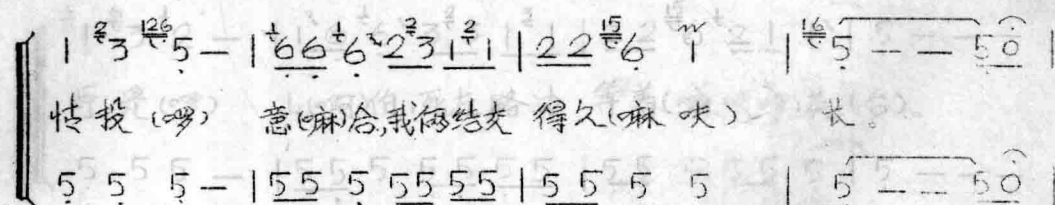 1 3 5 — | 6 6 6 2 3 1 1 | 2 2 6 1 | 5 — — 5 0 |
情投(啰) 意(嘛)合,我俩结交 得久(嘛 呋) 长。
5 5 5 — | 5 5 5 5 5 5 5 | 5 5 5 5 | 5 — — 5 0 |